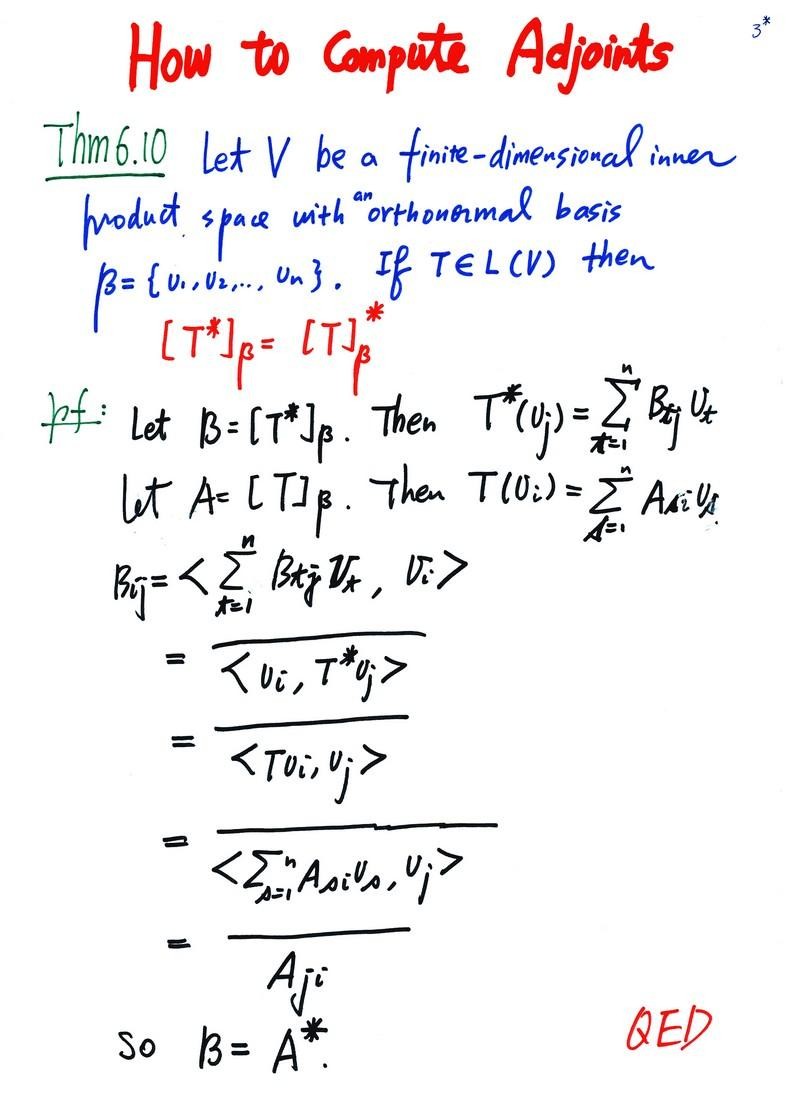 How to Compute Adjoints
3*
Thm 6.10 Let V be a finite-dimensional inner
product space with an orthonormal basis
β = {υ₁, υ₂, ..., υₙ}. If T ∈ L(V) then
[T*]_β = [T]_β*
pf: Let B = [T*]_β. Then T*(υ_j) = ∑_{t=1}^{n} B_{tj} υ_t
Let A = [T]_β. Then T(υ_i) = ∑_{s=1}^{n} A_{si} υ_s.
B_{ij} = <∑_{t=1}^{n} B_{tj} υ_t, υ_i>
= \overline{<υ_i, T*υ_j>}
= \overline{<Tυ_i, υ_j>}
= \overline{<∑_{s=1}^{n} A_{si} υ_s, υ_j>}
= \overline{A_{ji}}
So B = A*.
QED